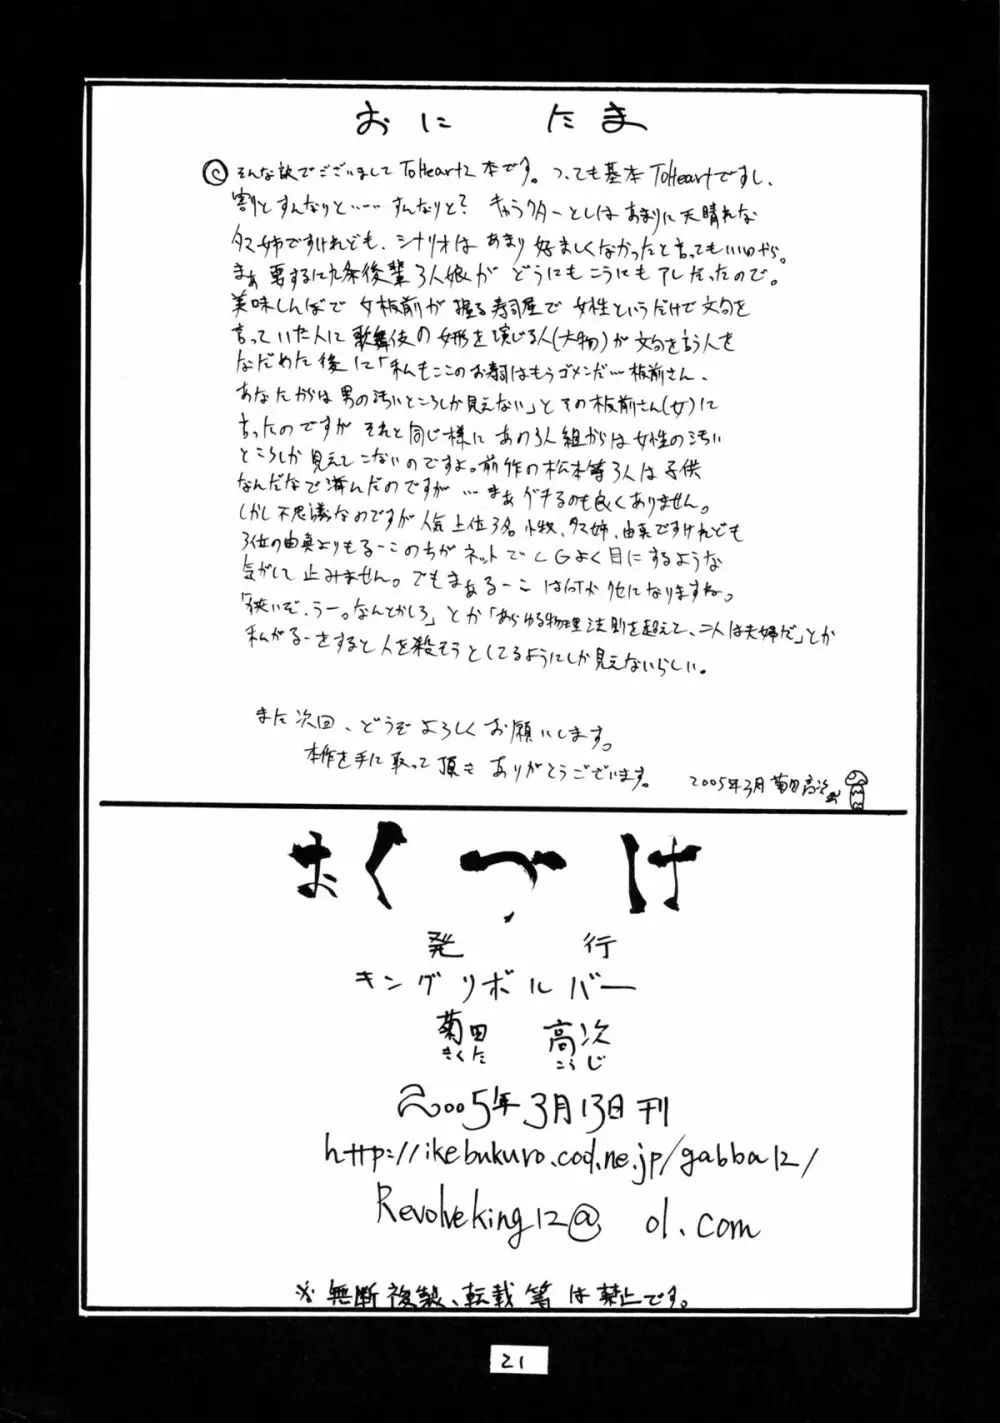 おに たま
そんな訳でございまして ToHeart2 本です。つっても基本 ToHeartですし、
割とすんなりと……すんなりと? キャラクターとしはあまりに天晴れな
タマ姉ですけれども、シナリオはあまり好ましくなかったと言ってもいいやら。
まぁ要するに九条後輩3人娘がどうにもこうにもアレだったので。
美味しんぼで女板前が握る寿司屋で女性というだけで文句を
言っていた人に歌舞伎の女形を演じる人(大物)が文句を言う人を
なだめた後に「私もここのお寿司はもうゴメンだ…板前さん、
あなたからは男の汚いところしか見えない」とその板前さん(女)に
言ったのですがそれと同じ様にあの3人組からは女性の汚い
ところしか見えてこないのですよ。前作の松本等3人は子供
なんだなで済んだのですが…まぁグチるのも良くありません。
しかし不思議なのですが人気上位3名、小牧、タマ姉、由真ですけれども
3位の由真よりもるーこのちがネットでLGよく目にするような
気がして止みません。でもまぁるーこは何か気になりますね。
「狭いぞ、うー。なんとかしろ」とか「あらゆる物理法則を超えて、二人は夫婦だ」とか
私がるーをすると人を殺そうとしてるようにしか見えないらしい。
また次回、どうぞよろしくお願いします。
本作を手に取って頂きありがとうございます。
2005年3月 菊田高次
おくづけ
発 行
キングリボルバー
菊田 高次
きくた こうじ
2005年3月13日刊
http://ikebukuro.cod.ne.jp/gabba12/
Revolveking12@ ol.com
※無断複製、転載等は禁止です。
21